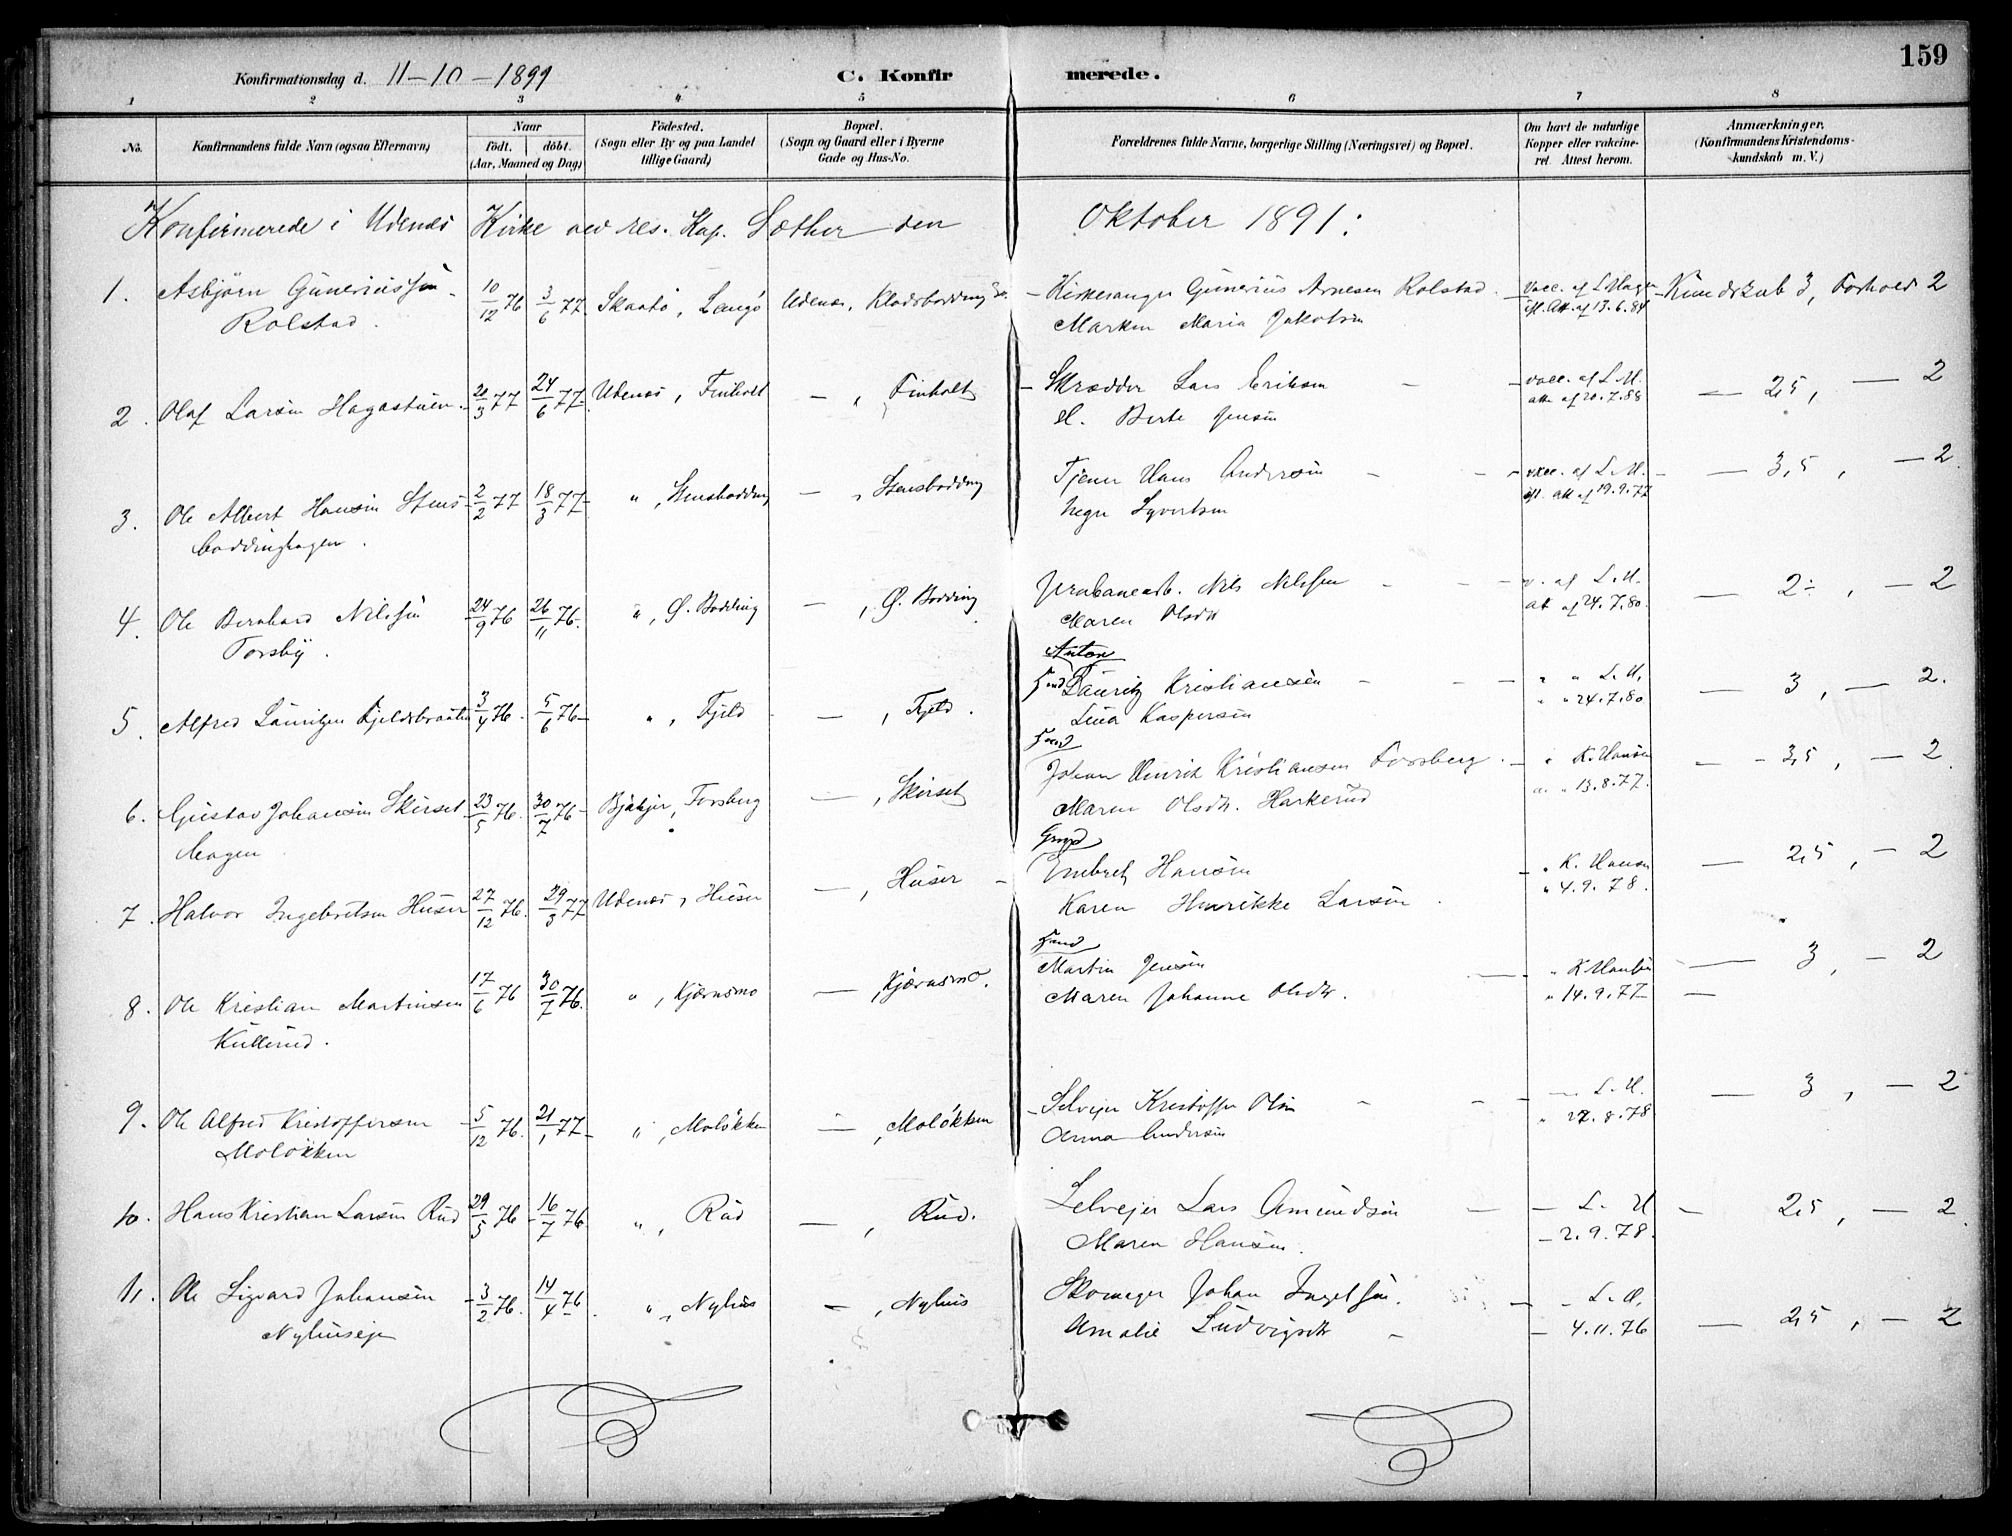 159
Konfirmationsdag d. 11-10-1891
C. Konfirmerede.
1 2 3 4 5 6 7 8
No. Konfirmandens fulde Navn (ogsaa Efternavn)
Naar födt. döbt. (Aar, Maaned og Dag)
Födested. (Sogn eller By og paa Landet tillige Gaard)
Bopæl. (Sogn og Gaard eller i Byerne Gade og Hus-No.
Forældrenes fulde Navne, borgerlige Stilling (Næringsvei) og Bopæl.
Om havt de naturlige Kopper eller vakcineret. Attest herom.
Anmærkninger. (Konfirmandens Kristendomskundskab m. V.)
Konfirmerede i Udenes Kirke ved res. Kap. Sæther den Oktober 1891:
1. Asbjörn Güneriüssön 10/12 76 3/6 77 Skaatö, Langö Udenes, Kirkesanger Günerius Arnesen Rolstad vacc. af Kundskab 3, Forhold 2
Rolstad. Maria Jakobsen Att. af 13.6.84
2. Olaf Larsen Hagastuen 20/3 77 24/6 77 Udenes, Finholt — , Finholt — Skrædder Lars Eriksen — vacc. af L.M. — 2,5, — 2
H. Berte Jensen att. af 20.7.88
3. Ole Albert Hansen Stens- 2/2 77 18/3 77 " , Stensbodding — , Stensbodding Tjener Hans Andersen vacc. af L.M. — 3,5, — 2
boddinghagen. Syvertsen att. af 19.9.77
4. Ole Bernhard Nilssen 24/9 76 26/11 76 " , Ø. Bodding — , Ø. Bodding Jernbanearb. Nils Nilssen v. af L.M. — 2÷, — 2
Forsby. Maren Olsdtr att af 24.7.80
Anton
5. Alfred Lauritzen Fjeldsbraaten 3/4 76 5/6 76 " , Fjeld — , Fjeld. Lauritz Kristiansen " " L.M. — 3, — 2.
Lina Kaspersen " " 24.7.80
6. Gustav Johansen Skirset- 23/5 76 30/7 76 Forsberg — , Skirset Johan Hinrik Kristiansen Forsberg " K. Hansen — 3,5, — 2
hagen Maren Olsdtr. Harkerud " " 13.8.77
7. Halvor Ingebretsen Huser 27/12 76 29/3 77 Udenes, Huser — , Huser Embret Hansen " K. Hansen — 2,5, — 2
Karen Henrikke Larsen " 4.9.78.
8. Ole Kristian Martinsen 17/6 76 30/7 76 " , Kjærnsmo — , Kjærnsmo. Martin Jensen " K Hansen — 3, — 2
Küllerud. Maren Johanne Olsdtr. " 14.9.77 —
9. Ole Alfred Kristoffersen 5/12 76 21/1 77 " , Molökken — , Molökken — Selvejer Kristoffer Olsen — L.M. — 3, — 2
Molökken Anna Andersen " 27.8.78
10. Hans Kristian Larsen Rüd 29/5 76 16/7 76 " , Rüd — , Rüd. Selvejer Lars Amundsen — L. M — 2,5, — 2
Maren Hansen. — 2.9.78.
11. Ole Sigvard Johansen 3/2 76 14/4 76 " , Nyhüs — , Nyhüs Skomager Johan — L.M. — 2,5, — 2
Nyhüseje Amalie Ludvigsdtr — 4.11.76